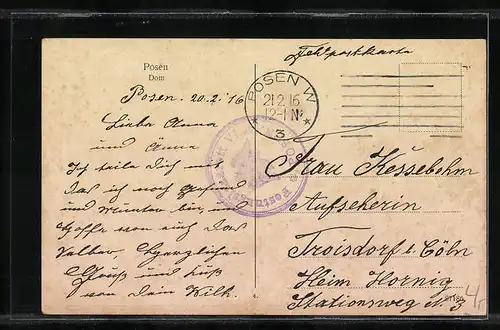 Posen
Dom
Feldpostkarte
Posen. 20.2.16
Liebe Anna
und Änne
Ich teile Dich mit
das ich noch gesund
und munter bin, und
hoffe von euch das
selbe, herzlichen
Gruß und Kuß
von Dein Wilh.
POSEN W
21.2.16
12-1 N
* 3 *
Frau Hüssebohm
Aufseherin
Troisdorf b. Cöln
Heim Hornig
Stationsweg 3